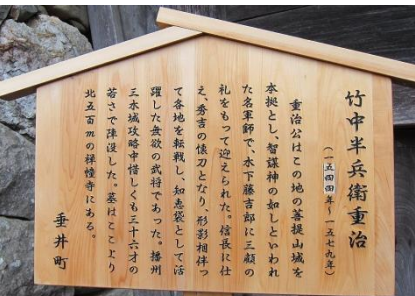 竹中半兵衛重治
(一五四四年〜一五七九年)
重治公はこの地の菩提山城を
本拠とし、智謀神の如しといわれ
た名軍師で、木下藤吉郎に三顧の
礼をもって迎えられた。信長に仕
え、秀吉の懐刀となり、形影相伴っ
て各地を転戦し、知恵袋として活
躍した無欲の武将であった。播州
三木城攻略中惜しくも三十六才の
若さで陣没した。墓はここより
北五百mの禅幢寺にある。
垂井町